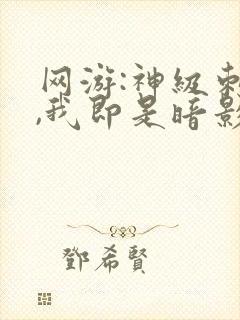 网游:神级刺
,我即是暗影
鄧希賢